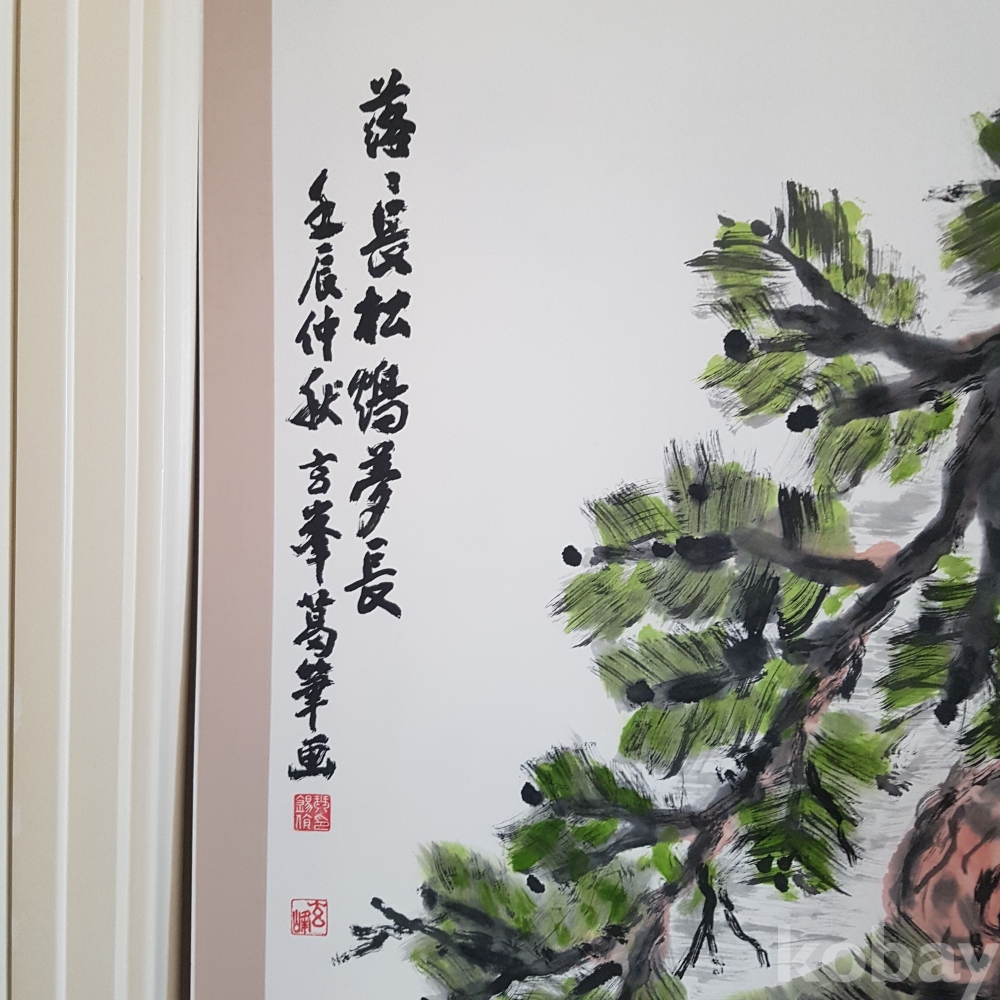 落〻長松鶴夢長
壬辰仲秋玄峯葛筆画
玄峰
kobay